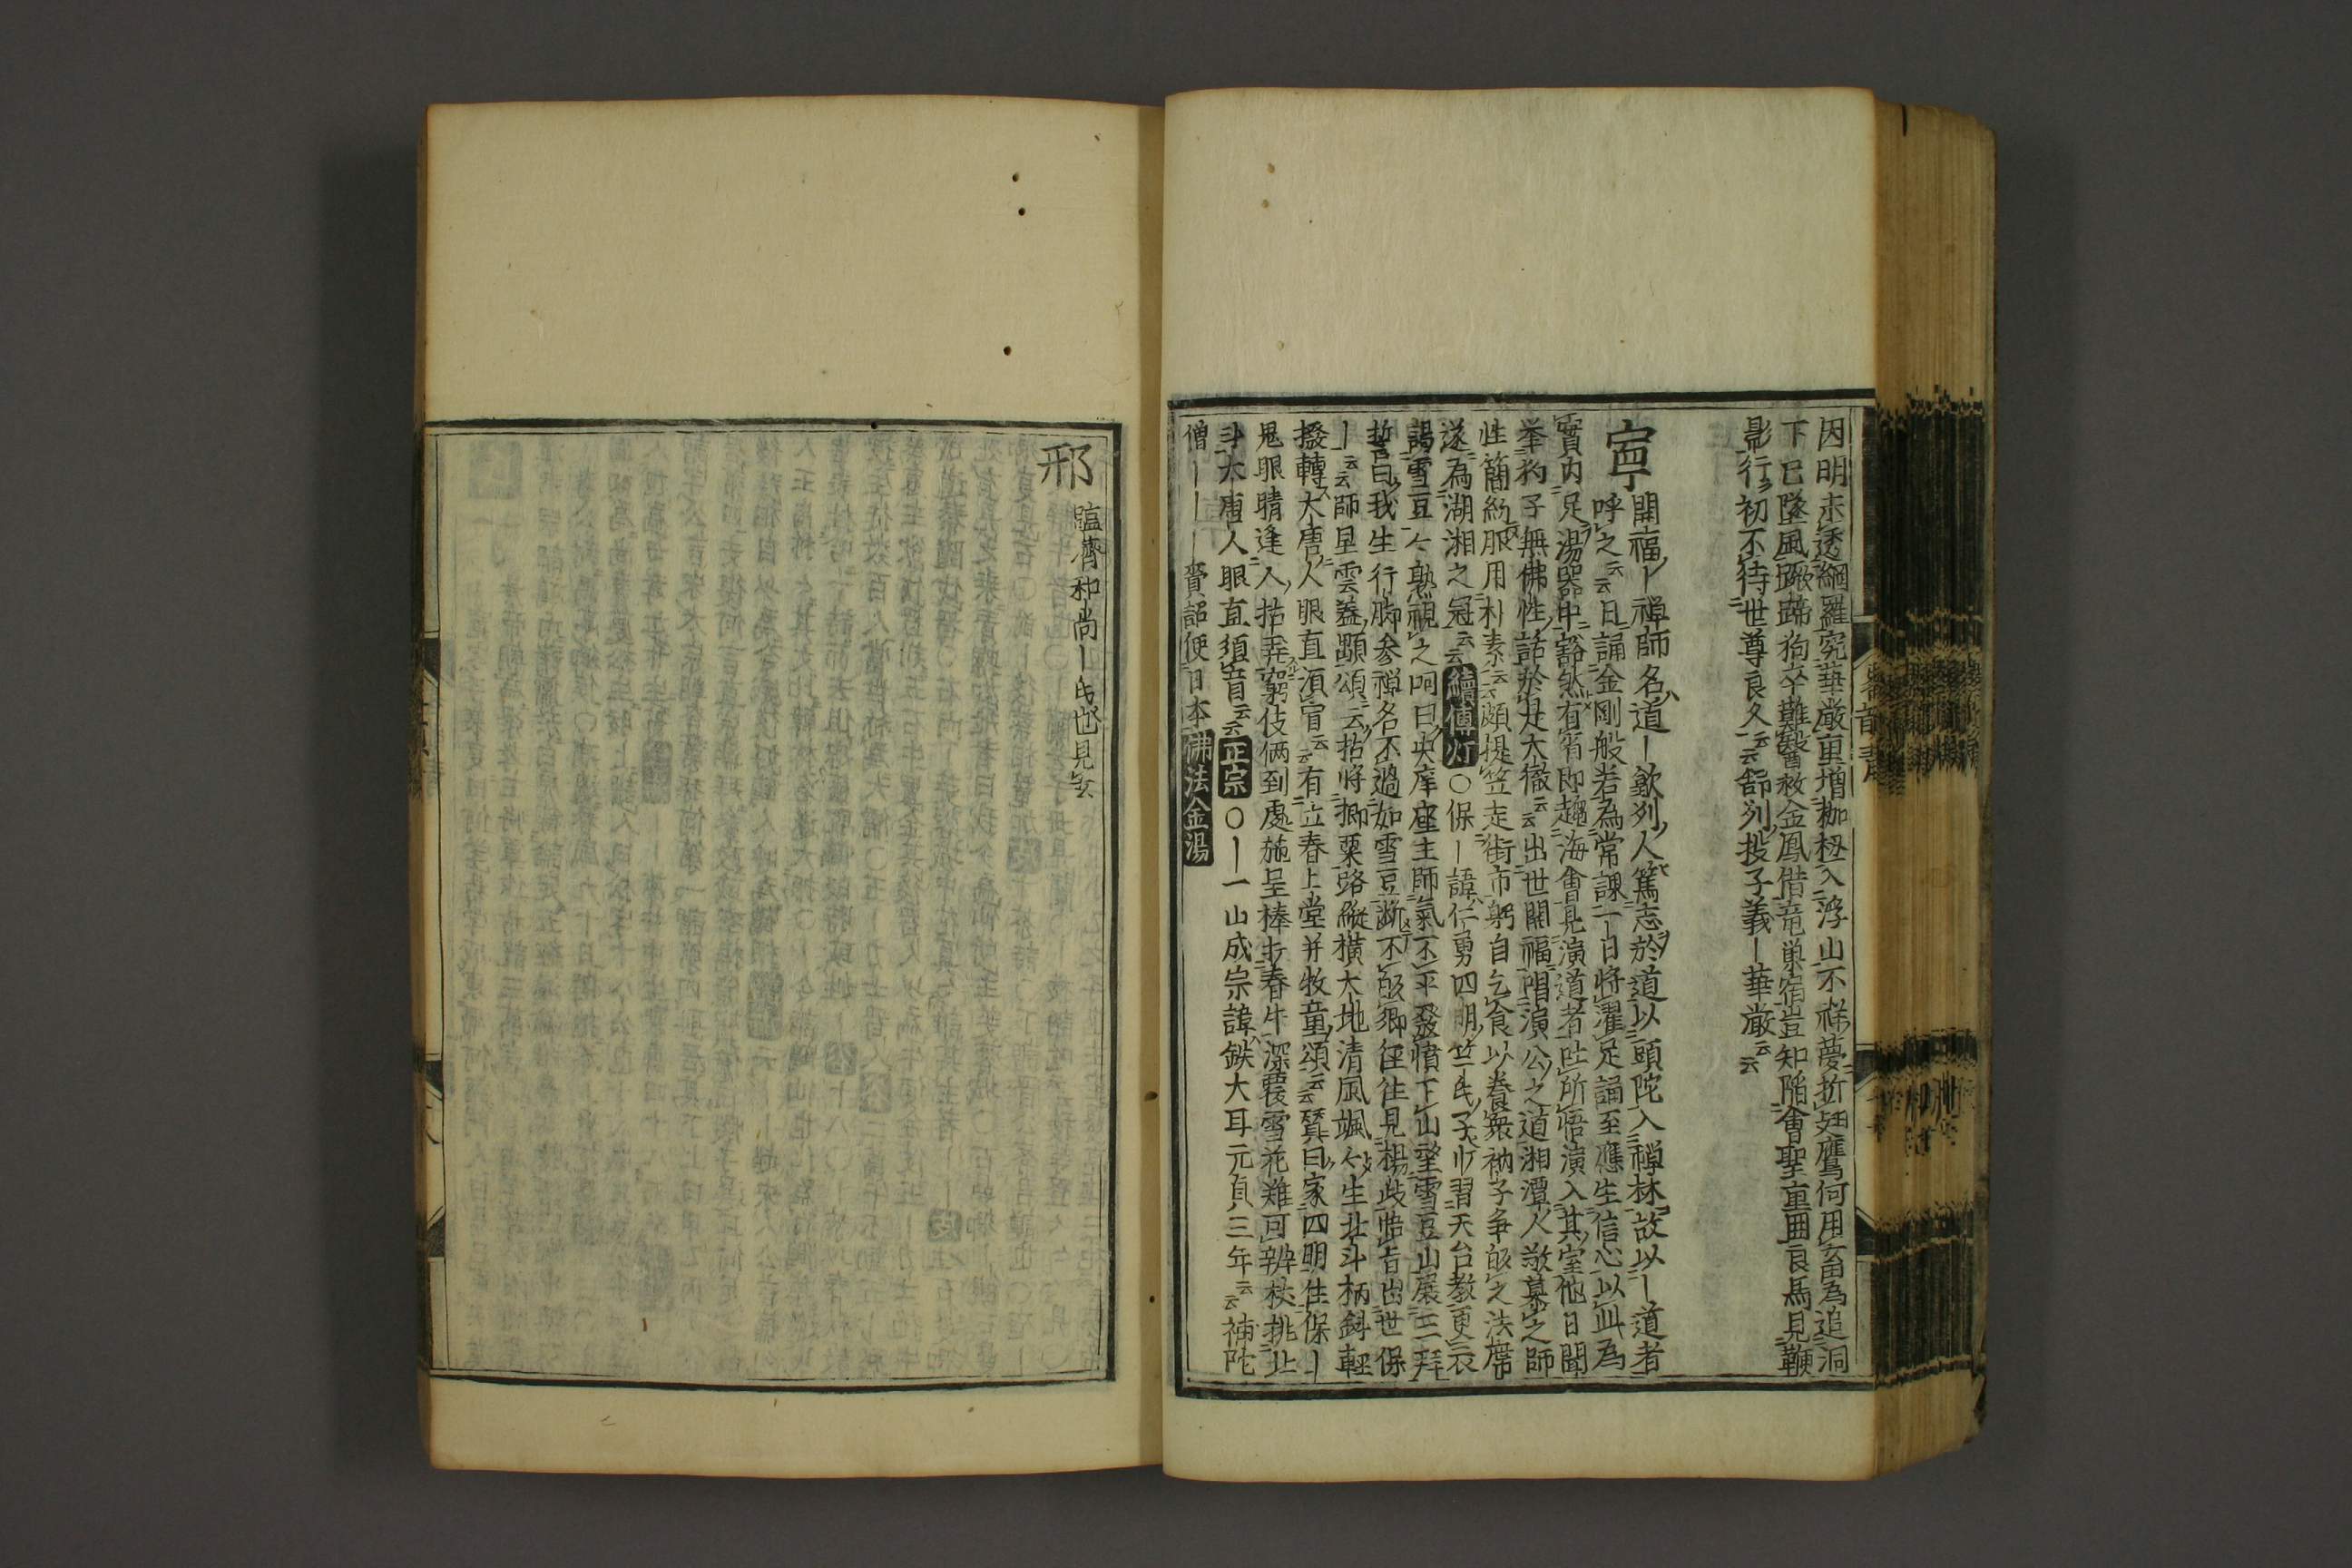 因明未透網羅究華嚴重増枷杻入浮山不祥夢折廷鷹何用畜為追洞
下已墜風蹶蹄狗卒難醫救金鳳借竜巣宿豈知陥會聖重囲良馬見鞭
影行初不待世尊良久云云舒列投子義｜華嚴云云
寧
開福｜禅師名道｜歙列人篤志於道以頭陀入禅林故以｜道者
呼之云云日誦金剛般若為常課一日将濯足誦至應生信心以此為
實内足湯器中豁然有省即趨海會見演道者吐所悟演入其室他日聞
挙狗子無佛性話於是大徹云云出世開福唱演公之道湘潭人敬慕之師
性簡約服用朴素云云頗提笠走街市躬自乞食以養衆衲子争皈之法席
遂為湖湘之冠云云續傳灯○保｜諱仁勇四明竺氏子少習天台教更衣
謁雪豆々熟視之呵曰央庠座主師氣不平發憤下山望雪豆山展三拜
誓曰我生行脚参禅名不過如雪豆断不皈郷径往見楊岐悟旨出世保
｜云云師呈雲蓋顒頌云拈将擳栗路縦横大地清風颯々生北斗柄斜輕
撥轉大唐人眼直須盲云云有立春上堂并牧童頌云云賛曰家四明住保｜
鬼眼睛逢人拈弄窮伎倆到處施呈棒歩春牛深覆雪花難可辨杖挑北
斗大唐人眼直須盲云云正宗○｜一山成宗諱鉄大耳元貞三年云云補陀
僧｜｜｜｜賚詔使日本佛法金湯
邢
臨濟和尚｜氏也見玄